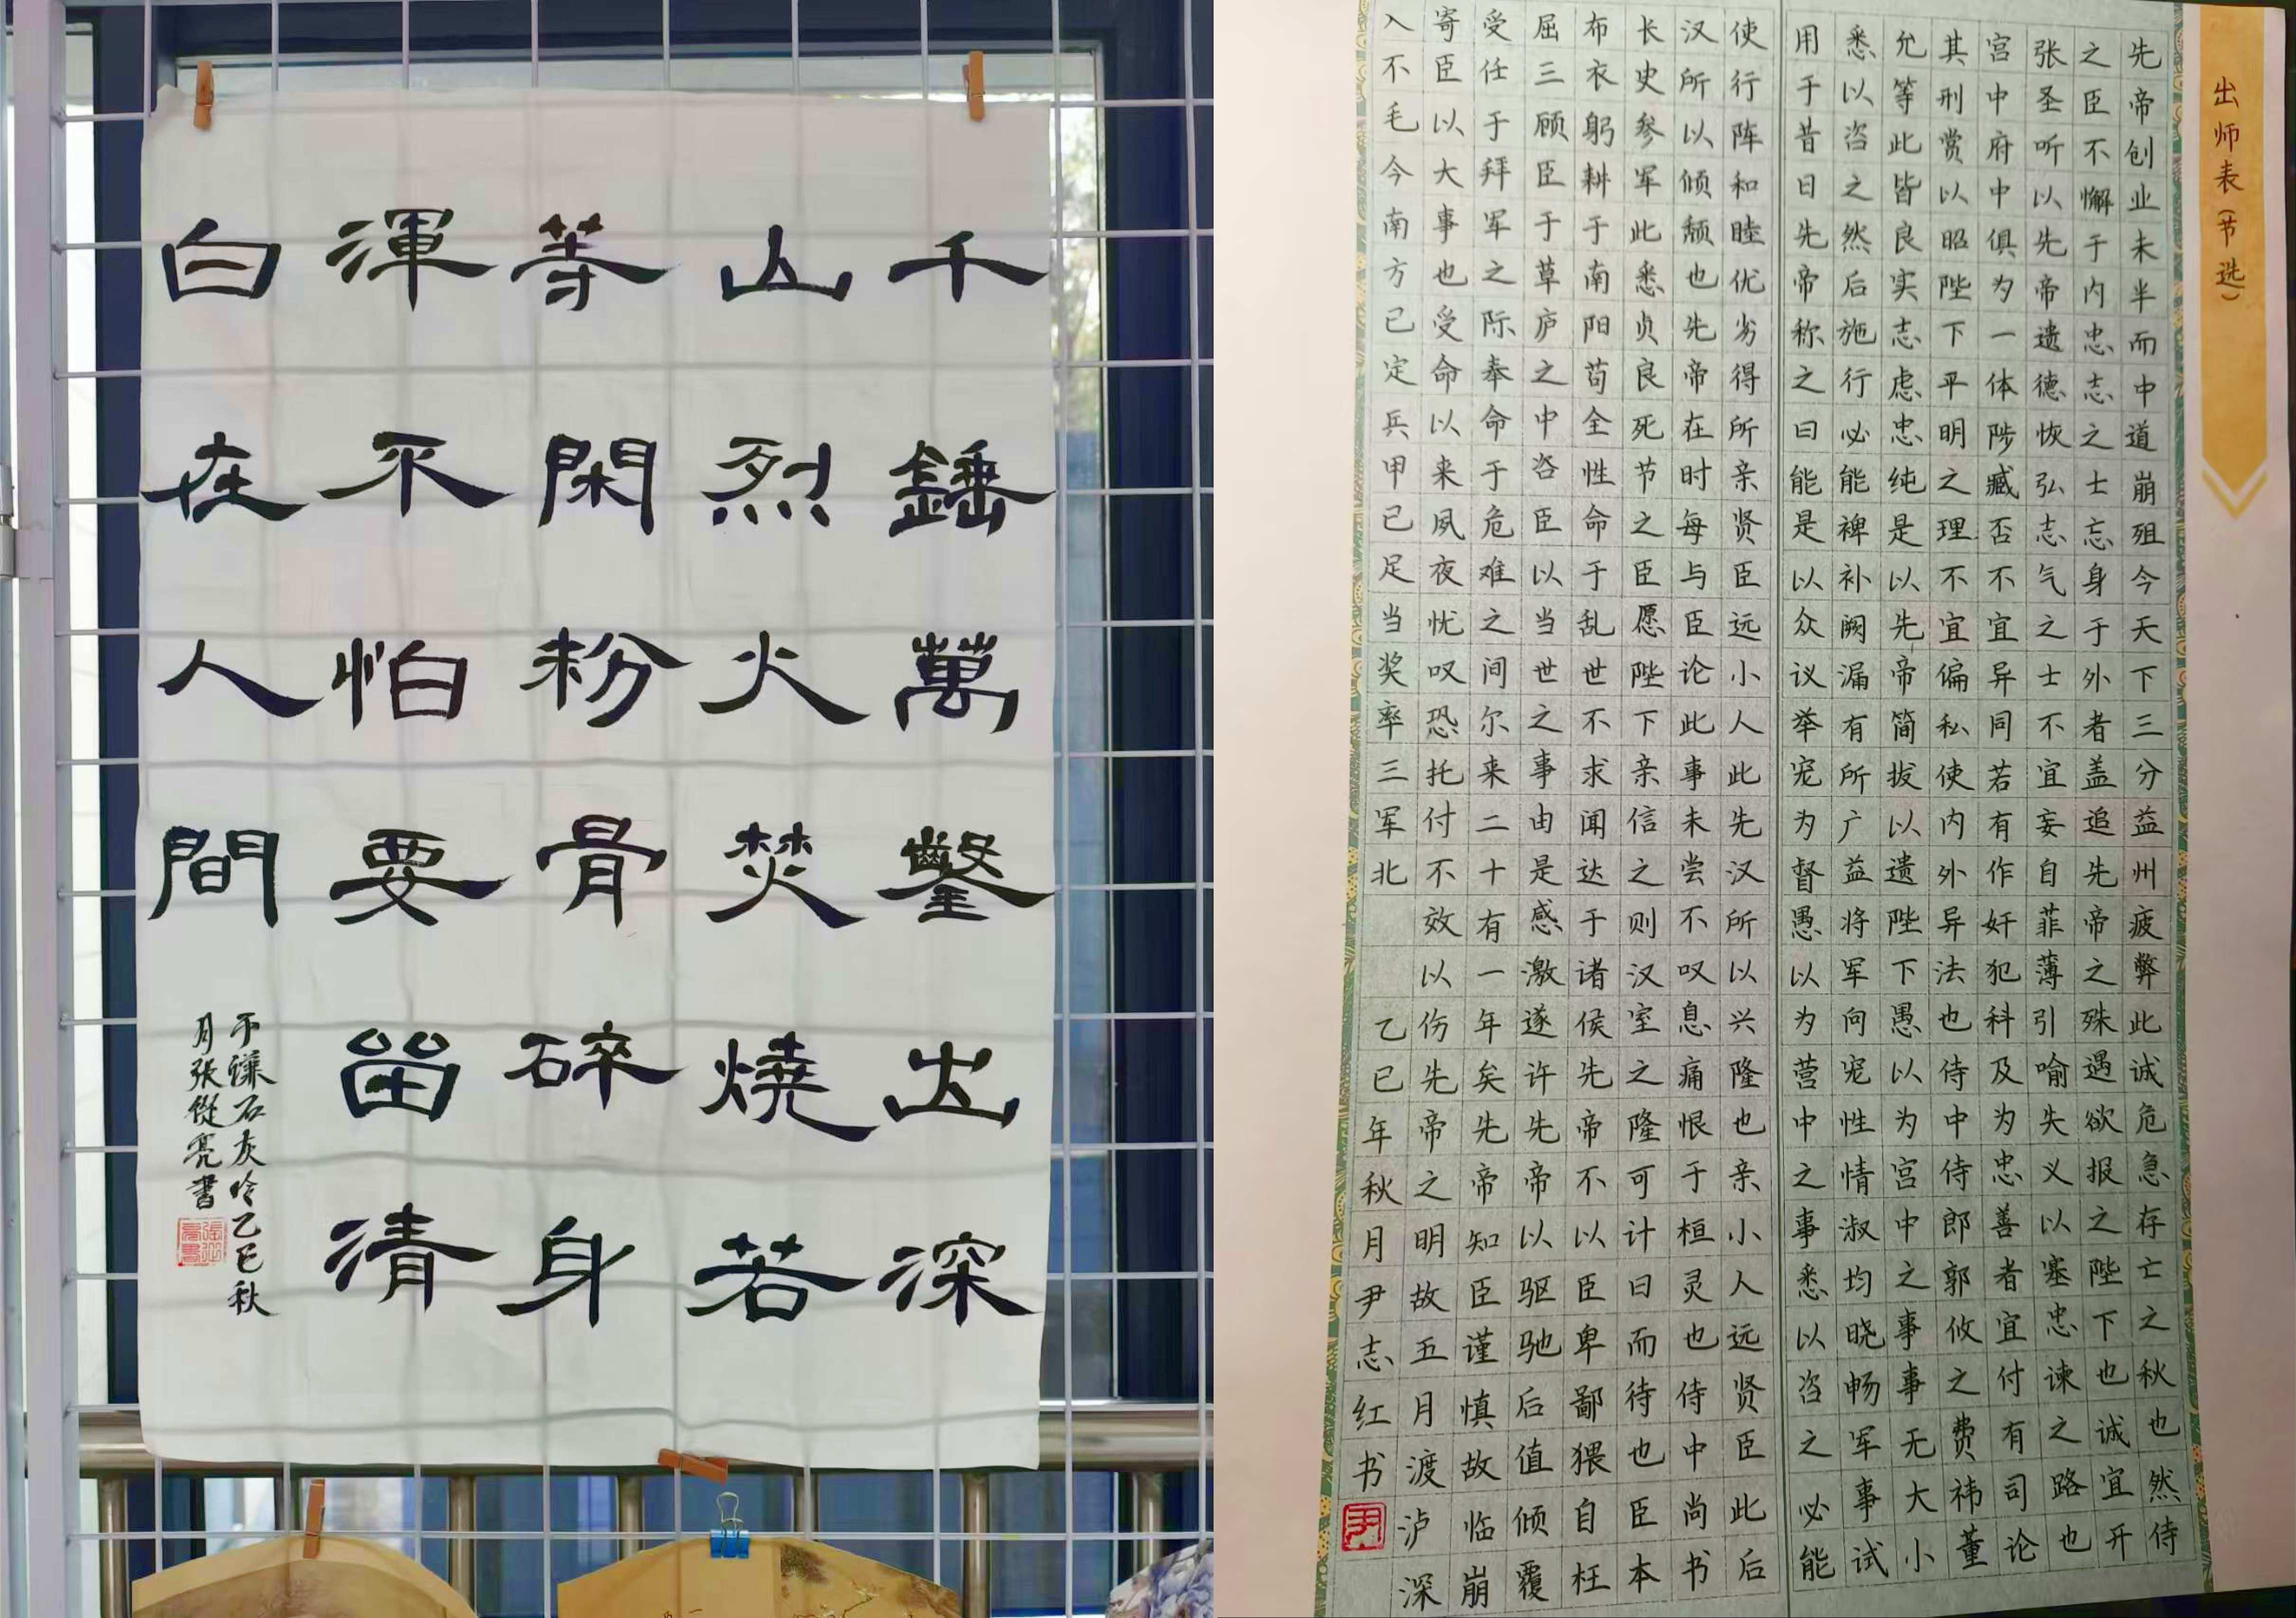 千錘萬鑿出深
山烈火焚燒若
等閑粉骨碎身
渾不怕要畱清
白在人間
于謙石灰吟乙巳秋
月張從亮書
出师表(节选)
先帝创业未半而中道崩殂今天下三分益州疲弊此诚危急存亡之秋也然侍
之臣不懈于内忠志之士忘身于外者盖追先帝之殊遇欲报之陛下也诚宜开
张圣听以先帝遗德恢弘志气之士不宜妄自菲薄引喻失义以塞忠谏之路也
宫中府中俱为一体陟臧否不宜异同若有作奸犯科及为忠善者宜付有司论
其刑赏以昭陛下平明之理不宜偏私使内外异法也侍中侍郎郭攸之费祎董
允等此皆良实志虑忠纯是以先帝简拔以遗陛下愚以为宫中之事事无大小
悉以咨之然后施行必能裨补阙漏有所广益将军向宠性情淑均晓畅军事试
用于昔日先帝称之曰能是以众议举宠为督愚以为营中之事悉以咨之必能
使行阵和睦优劣得所亲贤臣远小人此先汉所以兴隆也亲小人远贤臣此后
汉所以倾颓也先帝在时每与臣论此事未尝不叹息痛恨于桓灵也侍中尚书
长史参军此悉贞良死节之臣愿陛下亲信之则汉室之隆可计日而待也臣本
布衣躬耕于南阳苟全性命于乱世不求闻达于诸侯先帝不以臣卑鄙猥自枉
屈三顾臣于草庐之中咨臣以当世之事由是感激遂许先帝以驱驰后值倾覆
受任于拜军之际奉命于危难之间尔来二十有一年矣先帝知臣谨慎故临崩
寄臣以大事也受命以来夙夜忧叹恐托付不效以伤先帝之明故五月渡泸深
入不毛今南方已定兵甲已足当奖率三军北 乙巳年秋月尹志红书
尹